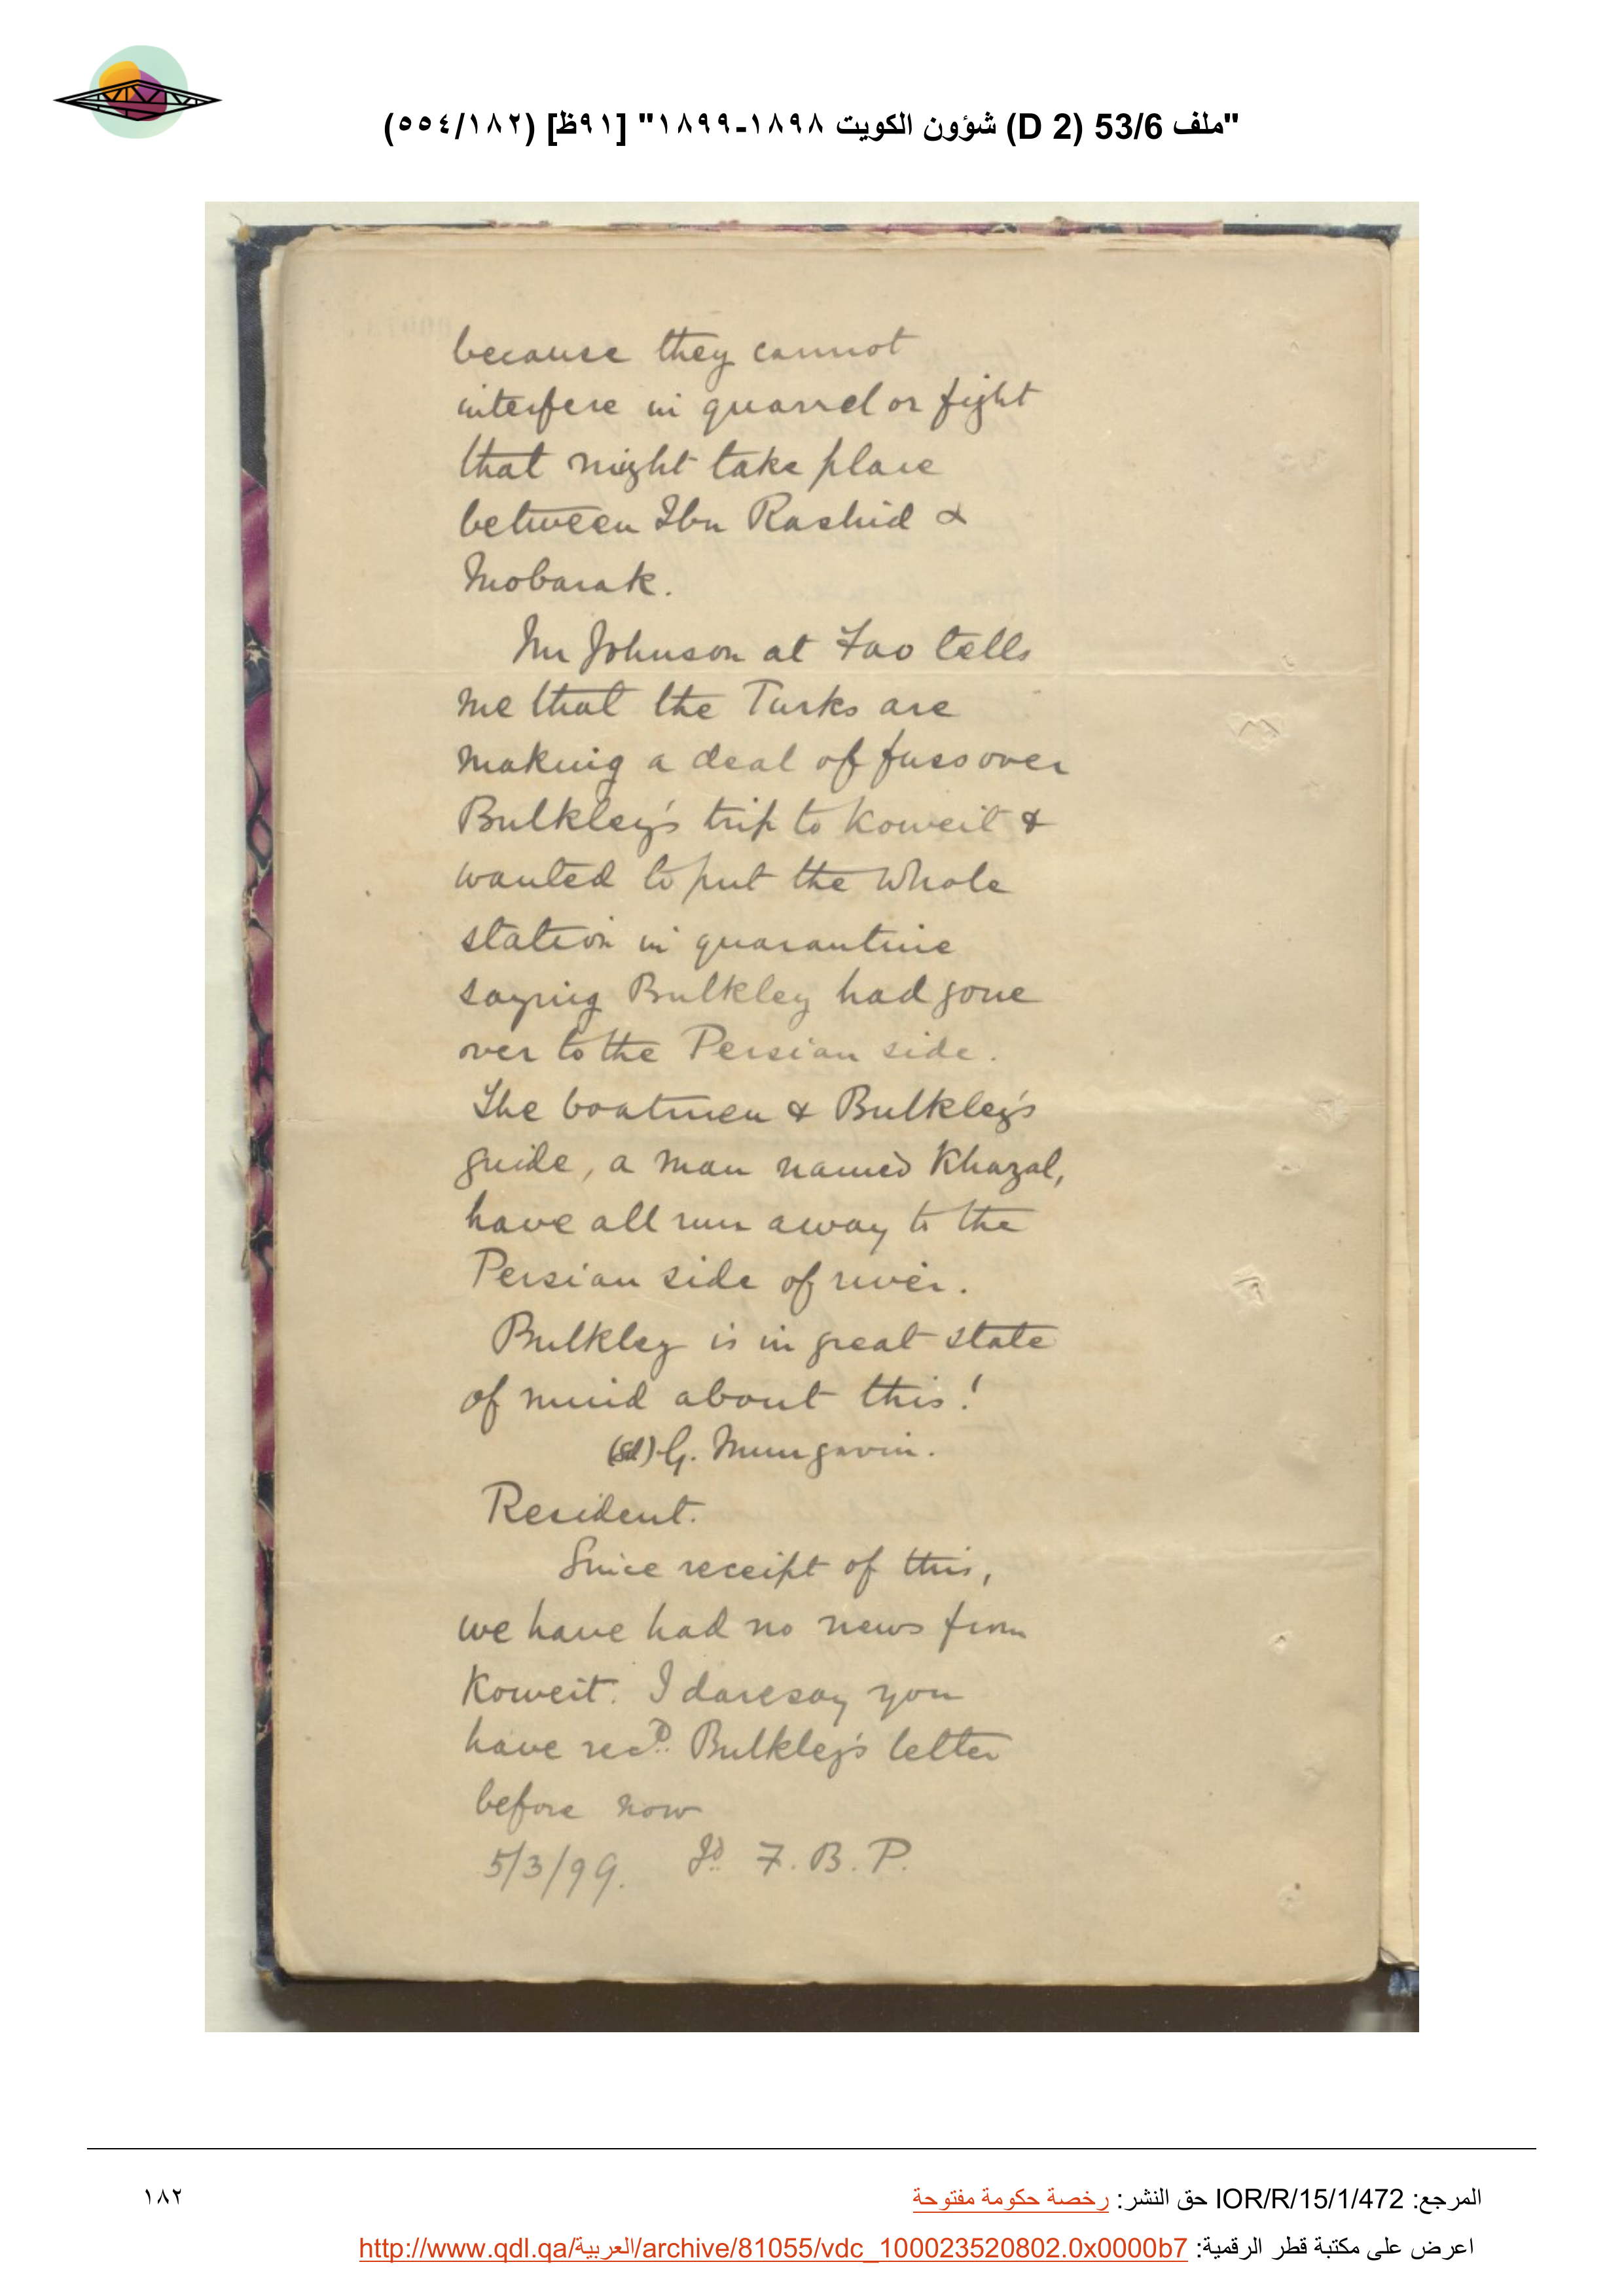 "ملف 53/6 (D 2) شؤون الكويت ١٨٩٨-١٨٩٩" [٩١ظ] (٥٥٤/١٨٢)
because they cannot
interfere in quarrel or fight
that might take place
between Ibn Rashid &
Mobarak.
Mr Johnson at Fao tells
me that the Turks are
making a deal of fuss over
Bulkley's trip to Koweit &
wanted to put the whole
station in quarantine
saying Bulkley had gone
over to the Persian side.
The boatmen & Bulkley's
guide, a man named Khazal,
have all run away to the
Persian side of river.
Bulkley is in great state
of mind about this!
(Sd) G. Mungavin.
Resident.
Since receipt of this,
we have had no news from
Koweit. I daresay you
have recd. Bulkley's letter
before now
5/3/99. F. B. P.
المرجع: IOR/R/15/1/472 حق النشر: رخصة حكومة مفتوحة
١٨٢
اعرض على مكتبة قطر الرقمية: http://www.qdl.qa/العربية/archive/81055/vdc_100023520802.0x0000b7